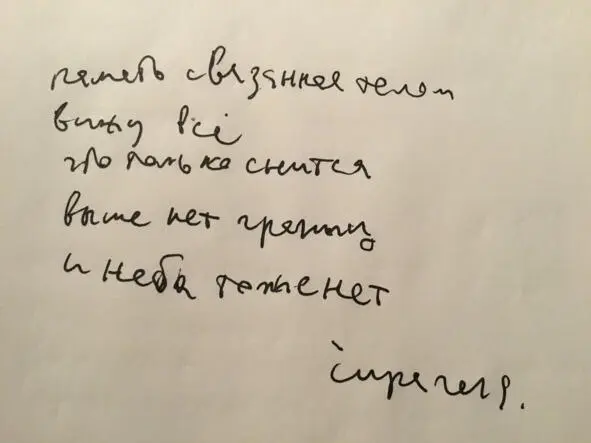 память связанная телом
вижу всё
что только снится
выше нет границ
и неба тоже нет